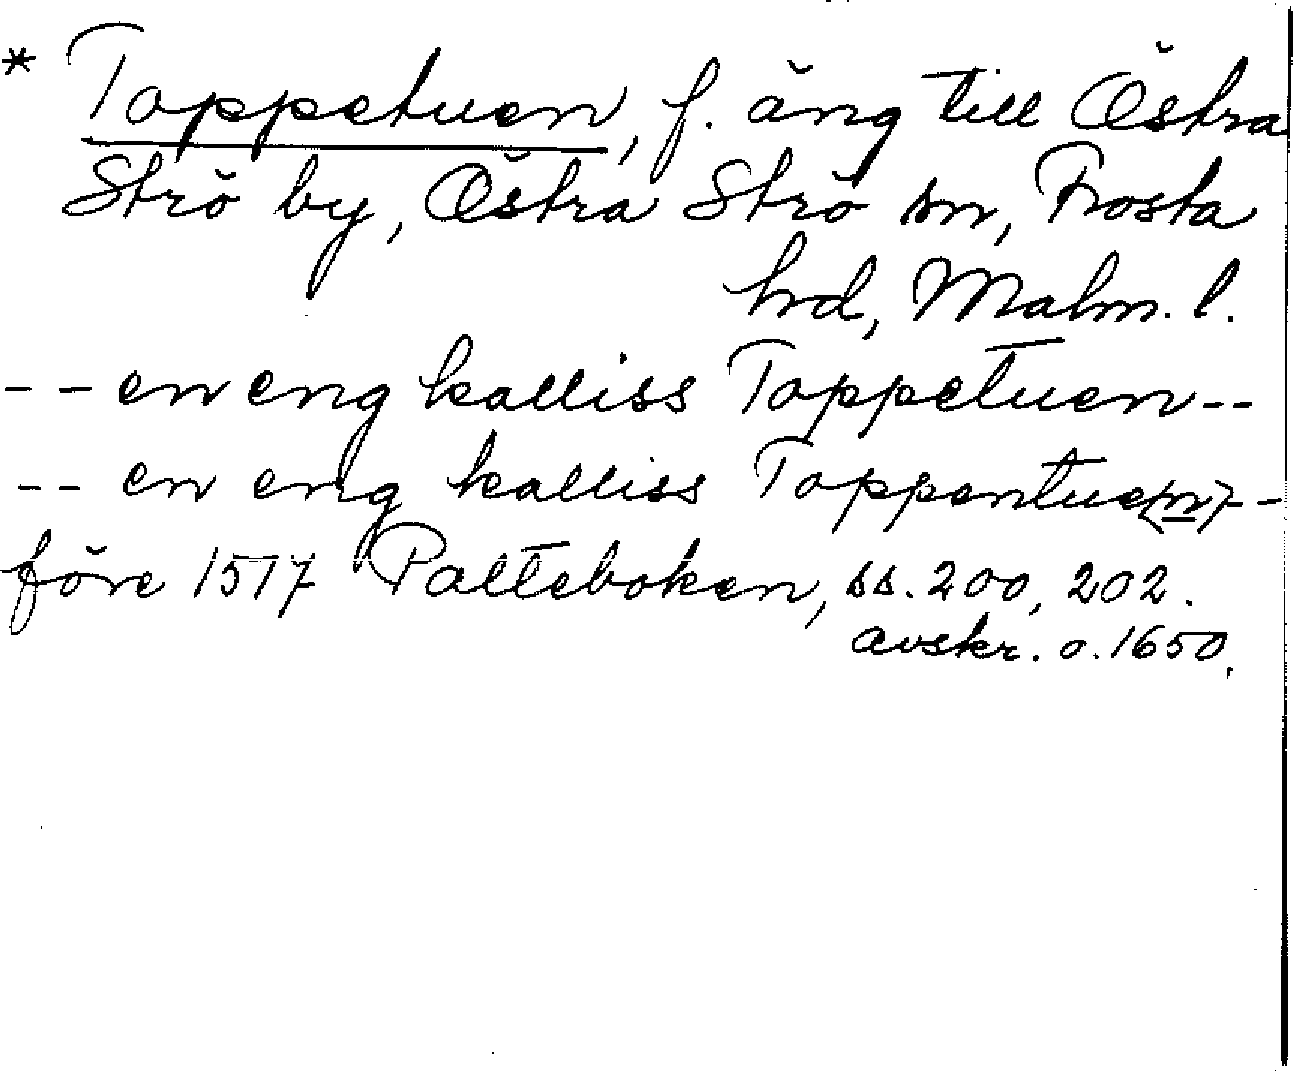 * Toppetuen, f. äng till Östra
Strö by, Östra Strö sn, Frosta
hd, Malm. l.
-- en eng kalliss Toppetuen --
-- en eng kalliss Toppentue(n) -
före 1517 Palteboken, ss. 200, 202.
avskr. o. 1650.